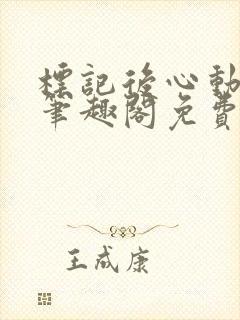 標記後心動
筆趣閣免費
王成康